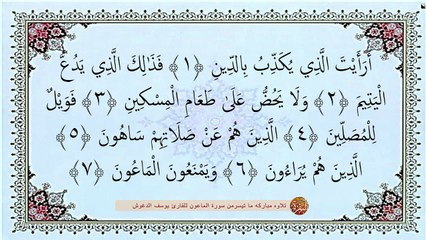 أَرَأَيْتَ الَّذِي يُكَذِّبُ بِالدِّينِ ﴿١﴾ فَذَلِكَ الَّذِي يَدُعُّ
الْيَتِيمَ ﴿٢﴾ وَلَا يَحُضُّ عَلَى طَعَامِ الْمِسْكِينِ ﴿٣﴾ فَوَيْلٌ
لِلْمُصَلِّينَ ﴿٤﴾ الَّذِينَ هُمْ عَنْ صَلَاتِهِمْ سَاهُونَ ﴿٥﴾
الَّذِينَ هُمْ يُرَاءُونَ ﴿٦﴾ وَيَمْنَعُونَ الْمَاعُونَ ﴿٧﴾
تلاوه مباركه ما تيسرمن سورة الماعون للقارئ يوسف الدغوش